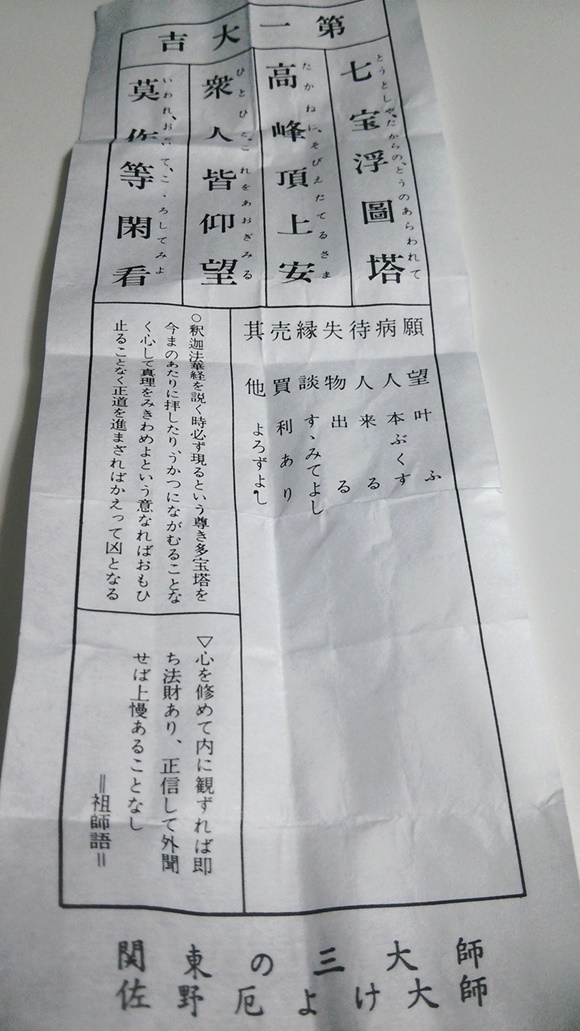 第一大吉
七宝浮圖塔
とうとしや、たからの、とうのあらわれて
高峰頂上安
たかねに、そびえたてるさま
衆人皆仰望
れをあおぎみる
莫作等閑看
ろしてみよ
願望叶ふ
病人本ぶくす
待人来る
失物出る
縁談すゝみてよし
売買利あり
其他よろずよし
○釈迦法華経を説く時必ず現るという尊き多宝塔を
今まのあたりに拝したり、うかつにながむることな
く心して真理をみきわめよという意なればおもひ
止ることなく正道を進まざればかえって凶となる
▽心を修めて内に観ずれば即
ち法財あり、正信して外聞
せば上慢あることなし
＝祖師語＝
関東の三大師
佐野厄よけ大師